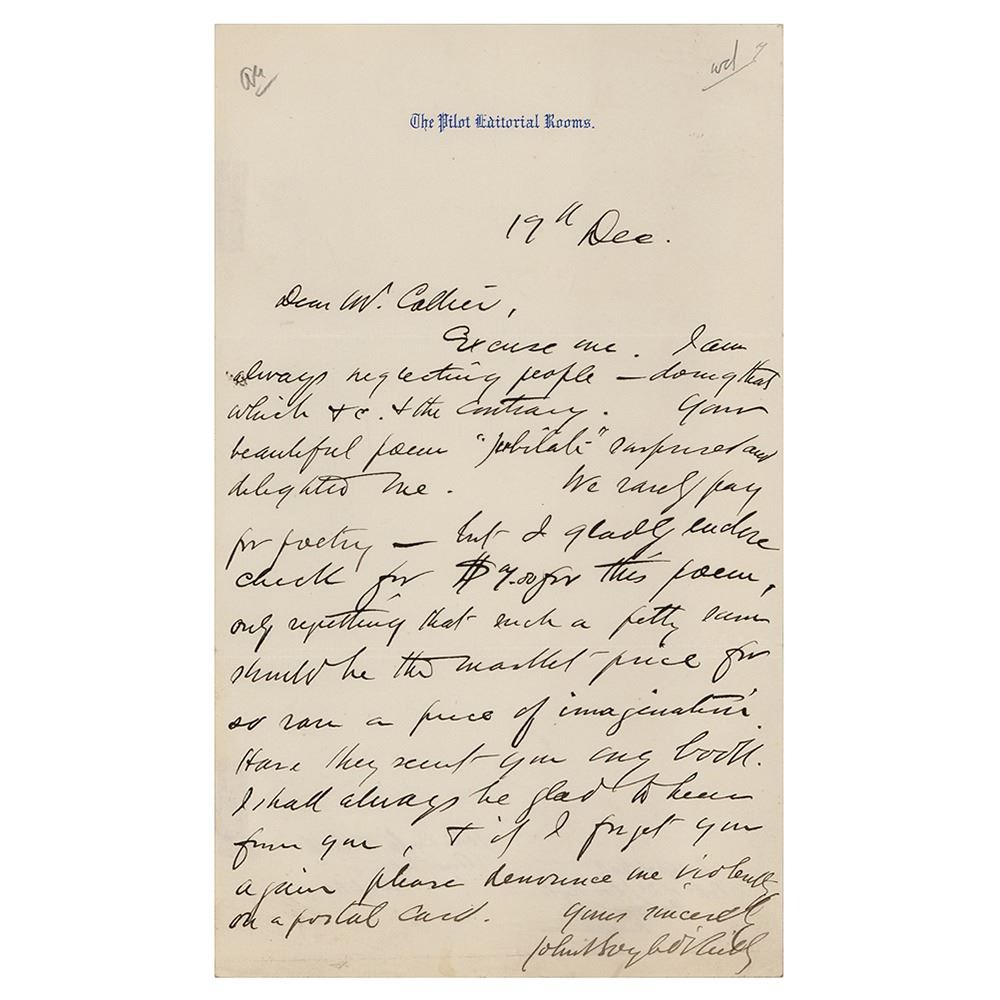 The Pilot Editorial Rooms.
19th Dec.
Dear Mr. Collier,
Excuse me. I am
always neglecting people — doing that
which &c. & the contrary. Your
beautiful poem "Jubilate" surprised and
delighted me. We rarely pay
for poetry — but I gladly enclose
check for $7.00 for this poem,
only regretting that such a petty sum
should be the market-price for
so rare a piece of imagination.
Have they sent you any book.
I shall always be glad to hear
from you, & if I forget you
again please denounce me violently
on a postal card. Yours sincerely
John Boyle O'Reilly